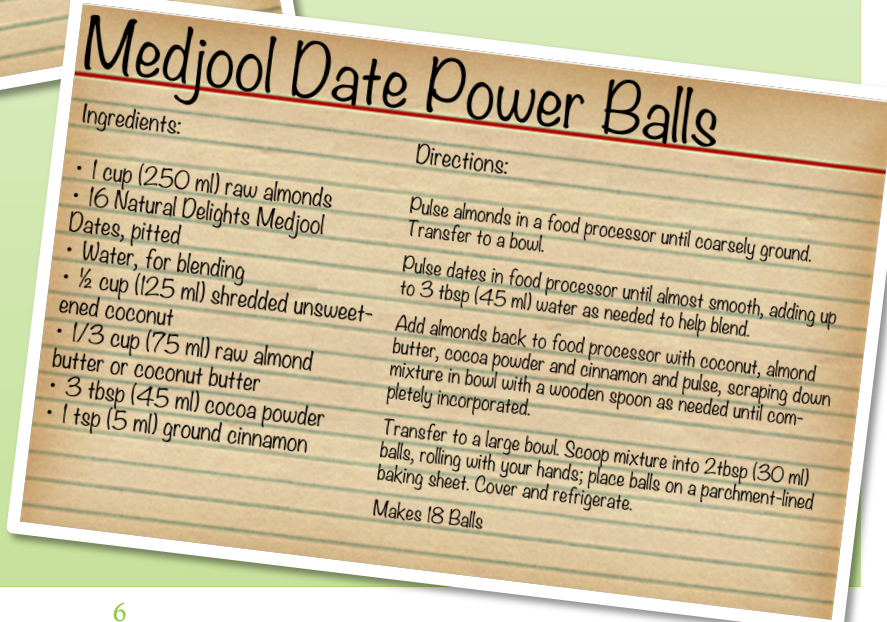 Medjool Date Power Balls
Ingredients:
• 1 cup (250 ml) raw almonds
• 16 Natural Delights Medjool
Dates, pitted
• Water, for blending
• ½ cup (125 ml) shredded unsweet-
ened coconut
• 1/3 cup (75 ml) raw almond
butter or coconut butter
• 3 tbsp (45 ml) cocoa powder
• 1 tsp (5 ml) ground cinnamon
Directions:
Pulse almonds in a food processor until coarsely ground.
Transfer to a bowl.
Pulse dates in food processor until almost smooth, adding up
to 3 tbsp (45 ml) water as needed to help blend.
Add almonds back to food processor with coconut, almond
butter, cocoa powder and cinnamon and pulse, scraping down
mixture in bowl with a wooden spoon as needed until com-
pletely incorporated.
Transfer to a large bowl. Scoop mixture into 2tbsp (30 ml)
balls, rolling with your hands; place balls on a parchment-lined
baking sheet. Cover and refrigerate.
Makes 18 Balls
6